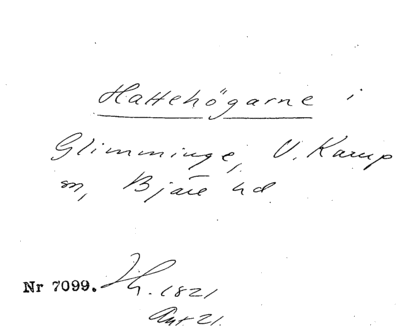 Hattehögarne i
Glimminge, V. Karup
sn, Bjäre hd
Nr 7099. Ih. 1821
Ant. 21.